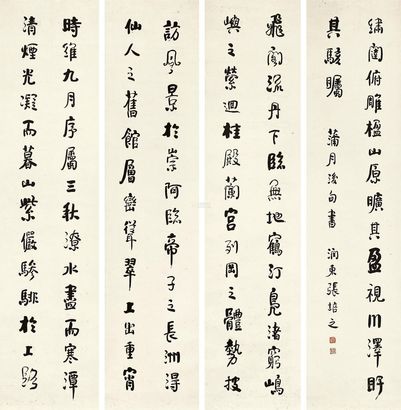 時維九月序屬三秋潦水盡而寒潭
清煙光凝而暮山紫儼驂騑於上路
訪風景於崇阿臨帝子之長洲得
仙人之舊館層巒聳翠上出重霄
飛閣流丹下臨無地鶴汀鳧渚窮嶋
嶼之縈迴桂殿蘭宮列岡之體勢披
繡闥俯雕楹山原曠其盈視川澤盱
其駭矚 蒲月後旬書 潤東張培之